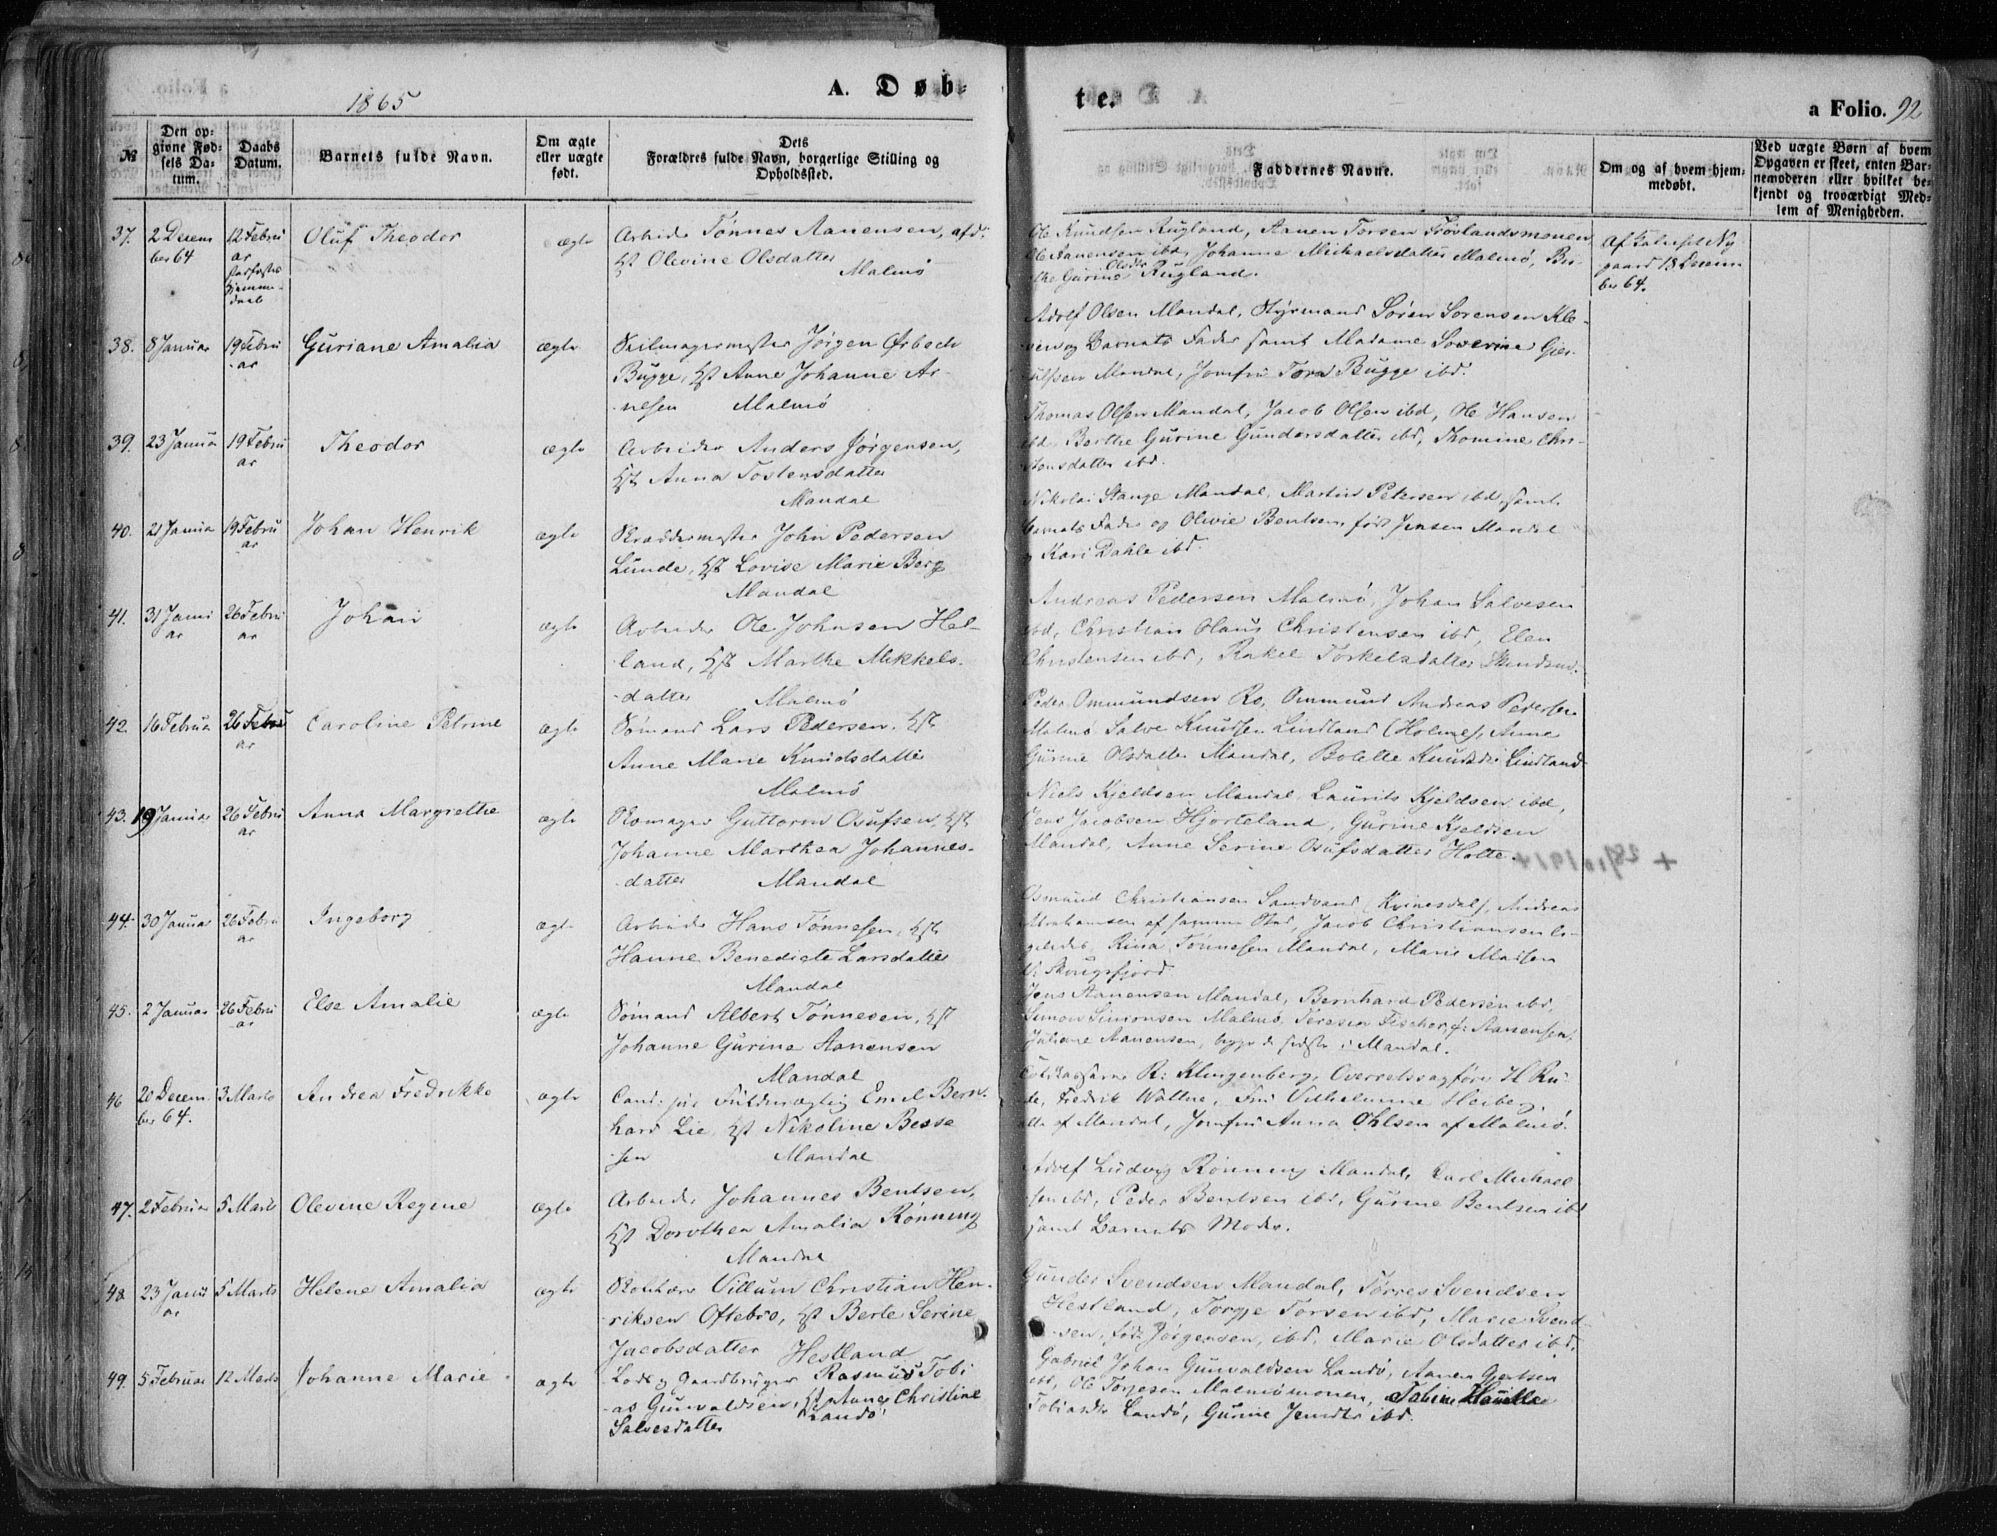 1865
A. Døb-
te.
a Folio. 92
№
Den op-
givne Fød-
sels Da-
tum.
Daabs
Datum.
Barnets fulde Navn.
Om ægte
eller uægte
født.
Dets
Forældres fulde Navn, borgerlige Stilling og
Opholdssted.
Faddernes Navne.
Om og af hvem hjem-
medøbt.
Ved uægte Børn af hvem
Opgaven er skeet, enten Bar-
nemoderen eller hvilket be-
kjendt og troværdigt Med-
lem af Menigheden.
37.
2 Decem
ber 64
12 Febru
ar
Oluf Theodor
ægte
Arbeider Tønnes Aanensen,
Hst Olevine Olsdatter
Malmø
Ole Knudsen Rugland, Aanen Torsen
Ole Aanensen ibd, Johanne Michaelsdatter Malmø, Ber-
the Gurine Olsdtr Rugland.
gaard 13 Decem
ber 64.
38.
8 Januar
19 Febru
ar
Guriane Amalia
ægte
Seilmagermester Jørgen Ørbech
Bugge, Hst Anne Johanne Ar-
nesen Malmø
Adolf Olsen Mandal, Styrmand Søren Sørensen Kle-
ven og Barnets Fader samt Madame Severine
Mandal, Jomfru Tora Bugge ibd.
39.
23 Januar
19 Febru
ar
Theodor
ægte
Arbeider Anders Jørgensen,
Hst Anna Tostensdatter
Mandal
Thomas Olsen Mandal, Jacob Olsen ibd, Ole Hansen
ibd Berthe Gurine Gundersdatter ibd, Thomine Chri-
stensdatter ibd.
40.
21 Januar
19 Febru
ar
Johan Henrik
ægte
Skræddermester John Pedersen
Lunde, Hst Lovise Marie Berg
Mandal
Nikolai Stange Mandal, Martin Petersen ibd, samt
Barnets Fader og Olivie Bentsen, født Jensen Mandal
og Kari Dahle ibd.
41.
31 Janu
ar
26 Febru
ar
Johan
ægte
Arbeider Ole Johnsen Hel-
land, Hst Marthe Mikkels-
datter Malmø
Andreas Pedersen Malmø, Johan Salvesen
ibd, Christian Olaus Christensen ibd, Elen
Christensen ibd, Rakel Torkelsdatter
42.
16 Februar
26 Febru
ar
Caroline Petrine
ægte
Sømand Lars Pedersen, Hst
Anne Marie Knudsdatter
Malmø
Peder Ommundsen Ro, Ommund Andreas Pedersen
Malmø Salve Knudsen Lindland (Holme), Anne
Gurine Olsdatter Mandal, Bolette Knudsdtr Lindland
43.
19 Januar
26 Febru
ar
Anna Margrethe
ægte
Skomager Guttorm Osufsen, Hst
Johanne Marthea Johannes-
datter Mandal
Niels Kjeldsen Mandal, Laurits Kjeldsen ibd,
Jens Jacobsen Hjorteland, Gurine Kjeldsen
Mandal, Anne Serine Osufsdatter Holte.
44.
30 Januar
26 Febru
ar
Ingeborg
ægte
Arbeider Hans Tønnesen, Hst
Hanne Benedicte Larsdatter
Mandal
Osmund Christiansen Sandvand (Kvinesdal), Andreas
Abrahamsen af samme Sted, Jacob Christiansen
Rina Tønnesen Mandal, Marie Madsen
Skougsfjord
45.
2 Januar
26 Febru
ar
Else Amalie
ægte
Sømand Albert Tønnesen, Hst
Johanne Gurine Aanensen
Mandal
Jens Aanensen Mandal, Bernhard Pedersen ibd,
Simon Simonsen Malmø, Teresia Fischer, f: Aanensen,
Juliane Aanensen, begge de sidste i Mandal.
46
20 Decem
ber 64.
3 Marts
Andrea Fredrikke
ægte
Cand: jur Fuldmægtig Emil Bern-
hard Lie, Hst Nikoline Besse
sen Mandal
R: Klingenberg, Overretssagfører H Ru-
de, Fredrik Wattne, Frue Vilhelmine Heiberg,
alle af Mandal, Jomfru Anna Ohlsen af Malmø.
47.
2 Februar
5 Marts
Olevine Regine
ægte
Arbeider Johannes Bentsen,
Hst Dorothea Amalia Rønning
Mandal
Adolf Ludvig Rønning Mandal, Carl Michael
sen ibd, Peder Bentsen ibd, Gurine Bentsen ibd
samt Barnets Moder.
48
23 Janu
ar
5 Marts
Helene Amalia
ægte
Skolelærer Villum Christian Hen-
riksen Oftebro, Hst Berte Serine
Jacobsdatter Hestland
Gunder Svendsen Mandal, Tørres Svendsen
Hestland, Torgje Torsen ibd, Marie Svend-
sen, født Jørgensen, ibd, Marie Olsdatter ibd,
49.
5 Februar
12 Marts
Johanne Marie
ægte
Lods og Gaardbruger Rasmus Tobi
as Gunvaldsen, Hst Anne Christine
Salvesdatter Landø
Gabriel Johan Gunvaldsen Landø, Aanen Gjertsen
ibd, Ole Torjesen Malmømonen,
Tobiasdtr Landø, Gurine Jensdtr ibd.